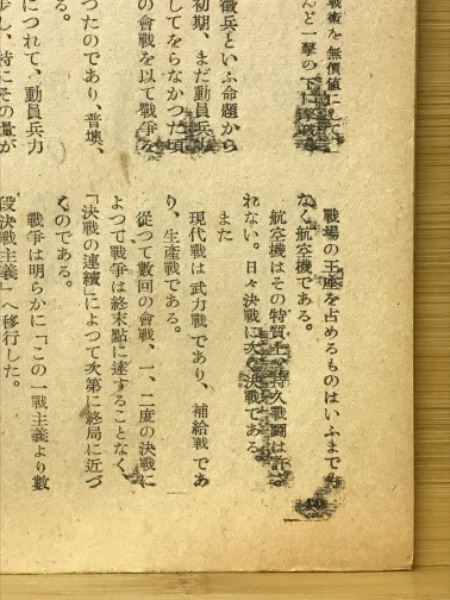 戰術を無價値にして
んど一擊の下に
徵兵といふ命題から
初期、まだ動員兵力
してをらなかつた頃
の會戰を以て戰爭を
つたのであり、普墺、
る。
につれて、動員兵力
步し、特にその量が
戰場の王座を占めるものはいふまでも
なく航空機である。
航空機はその特質上、持久戰鬪は許さ
れない。日々決戰に次ぐ決戰である。
また
現代戰は武力戰であり、補給戰であ
り、生產戰である。
從つて數回の會戰、一、二度の決戰に
よつて戰爭は終末點に達することなく、
「決戰の連續」によつて次第に終局に近づ
くのである。
戰爭は明らかに「この一戰主義より數
段決戰主義」へ移行した。